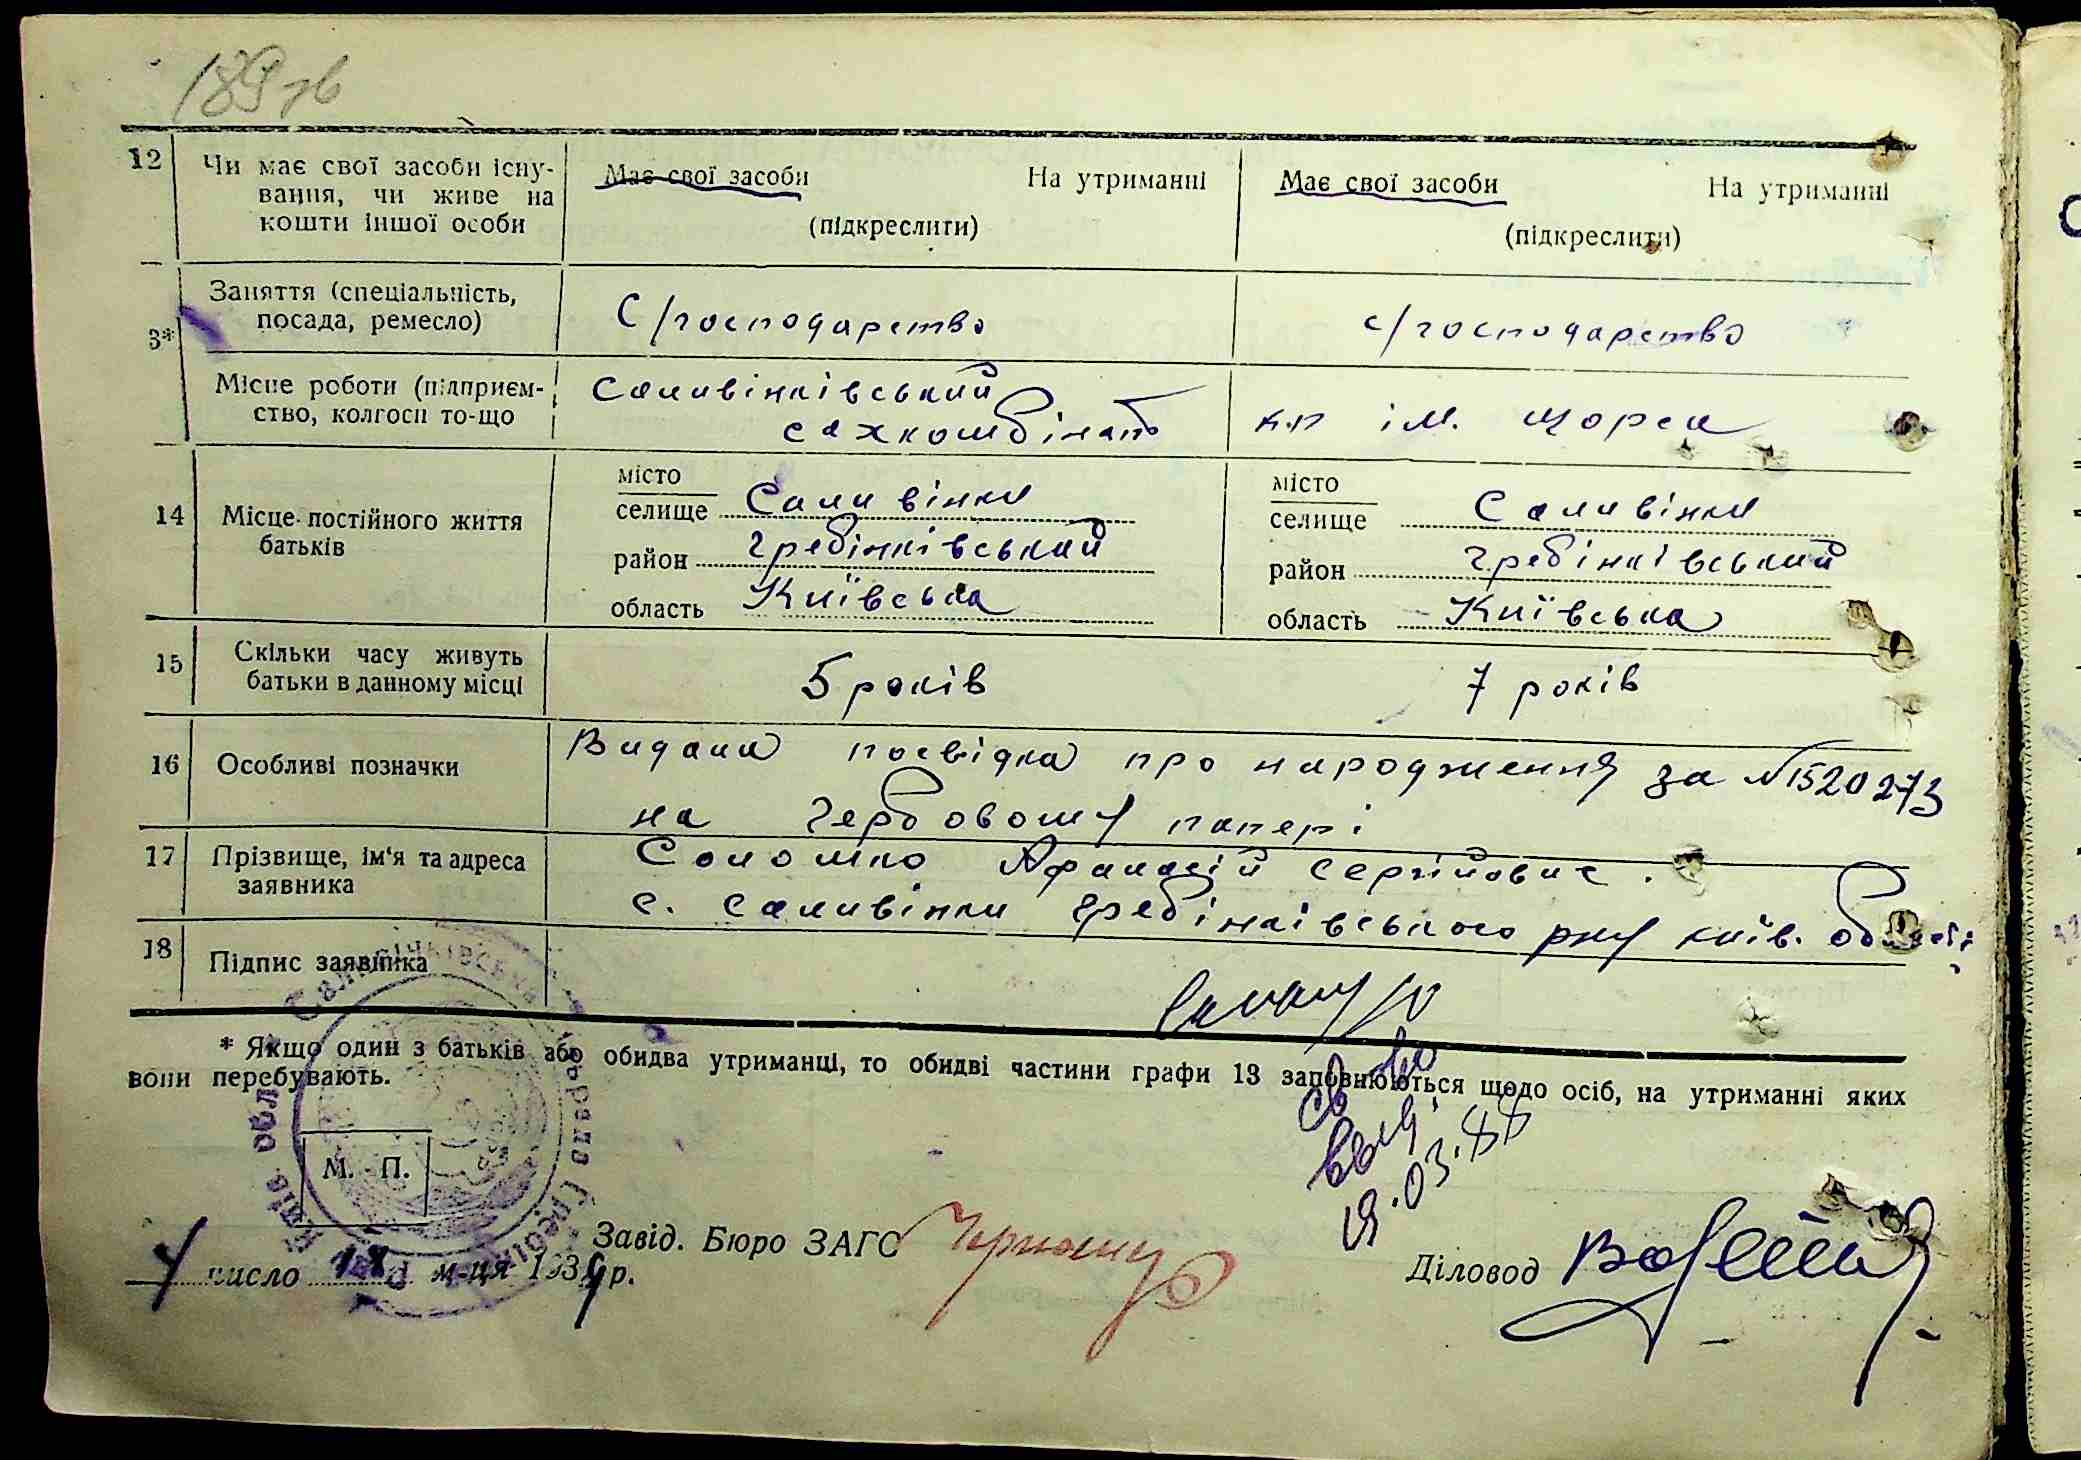 189 зв
12 Чи має свої засоби існу-
вання, чи живе на
кошти іншої особи
Має свої засоби На утриманні
(підкреслити)
Має свої засоби На утриманні
(підкреслити)
3* Заняття (спеціальність,
посада, ремесло)
С/господарство
с/господарство
Місце роботи (підприєм-
ство, колгосп то-що
Саливінківський
сахкомбінат
к.п ім. Щорса
14 Місце постійного життя
батьків
місто
селище Саливінки
район Гребінківський
область Київська
місто
селище Саливінки
район Гребінківський
область Київська
15 Скільки часу живуть
батьки в данному місці
5 років
7 років
16 Особливі позначки
Видана посвідка про народження за №1520273
на гербовому папері
17 Прізвище, ім'я та адреса
заявника
Соломко Афанасій Сергійович.
с. Саливінки Гребінківського р-ну Київ. області
18 Підпис заявника
* Якщо один з батьків або обидва утриманці, то обидві частини графи 13 заповнюються щодо осіб, на утриманні яких
вони перебувають.
св-во
выд.
19.03.88
М. П.
Завід. Бюро ЗАГС
4 число м-ця 1939 р.
Діловод